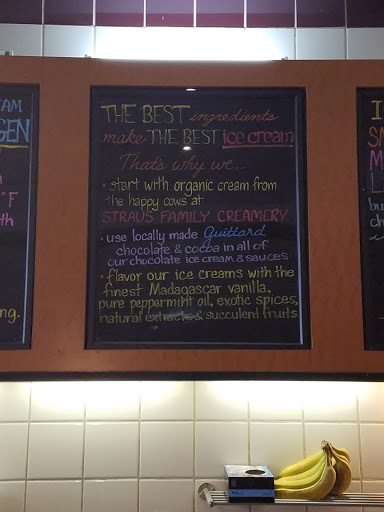 THE BEST ingredients
make THE BEST ice cream
That's why we...
• start with organic cream from
the happy cows at
STRAUS FAMILY CREAMERY
• use locally made Guittard
chocolate & cocoa in all of
our chocolate ice cream & sauces
• flavor our ice creams with the
finest Madagascar vanilla,
pure peppermint oil, exotic spices,
natural extracts & succulent fruits
AM
GEN
°F
th
ng.
I
SA
M
L
bu
ch